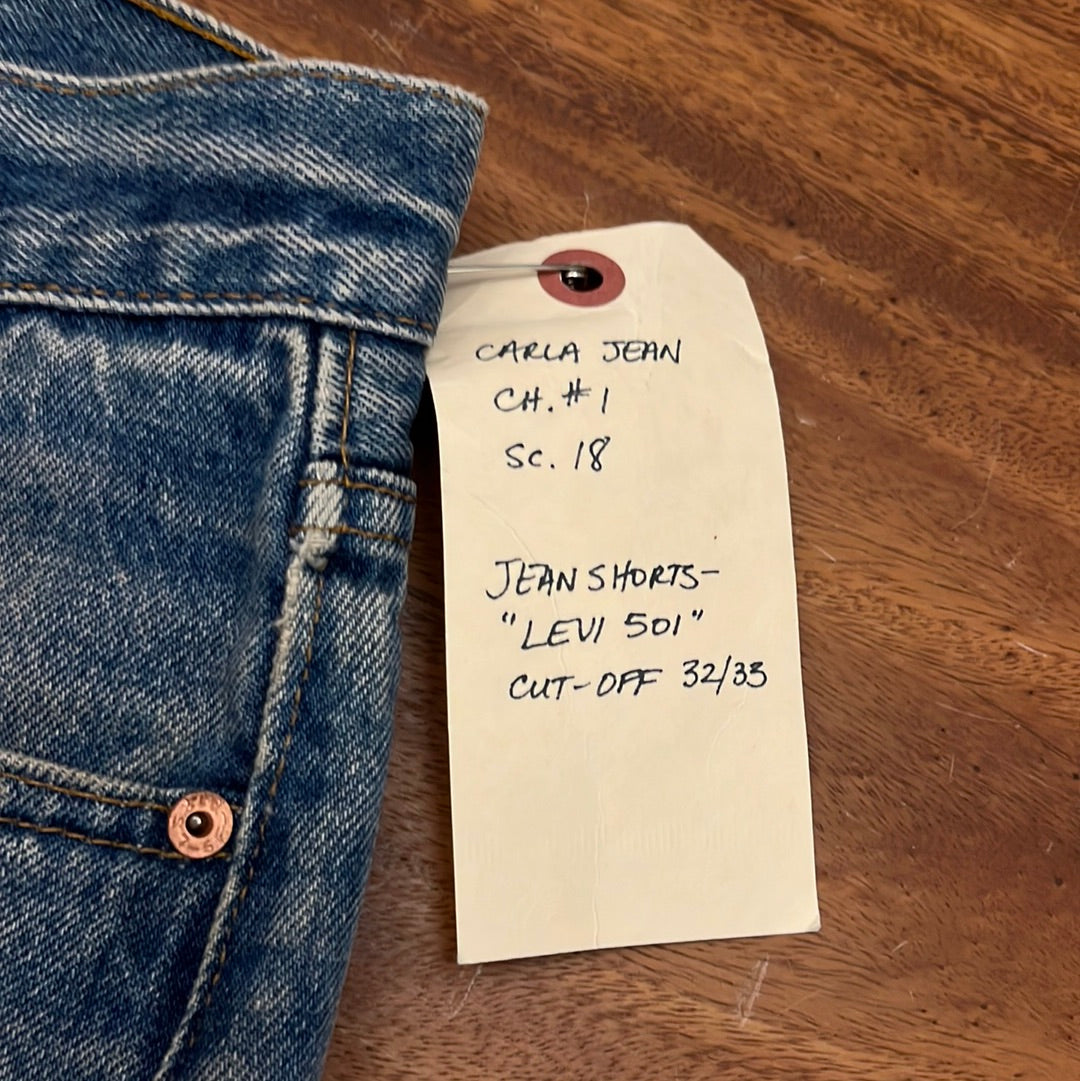 CARLA JEAN
CH. #1
SC. 18
JEAN SHORTS-
"LEVI 501"
CUT-OFF 32/33